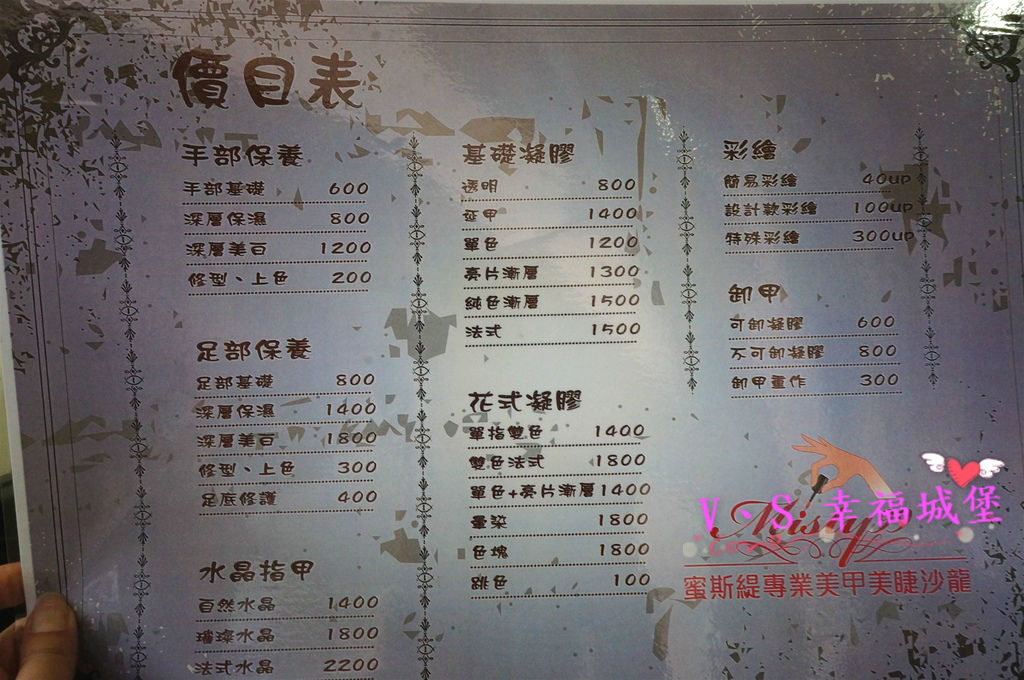 價目表
手部保養
手部基礎 600
深層保濕 800
深層美白 1200
修型、上色 200
足部保養
足部基礎 800
深層保濕 1400
深層美白 1800
修型、上色 300
足底修護 400
水晶指甲
自然水晶 1400
璀璨水晶 1800
法式水晶 2200
基礎凝膠
透明 800
延甲 1400
單色 1200
亮片漸層 1300
純色漸層 1500
法式 1500
花式凝膠
單指雙色 1400
雙色法式 1800
單色+亮片漸層 1400
暈染 1800
色塊 1800
跳色 100
彩繪
簡易彩繪 40up
設計款彩繪 100up
特殊彩繪 300up
卸甲
可卸凝膠 600
不可卸凝膠 800
卸甲重作 300
V、S 幸福城堡
蜜斯緹專業美甲美睫沙龍